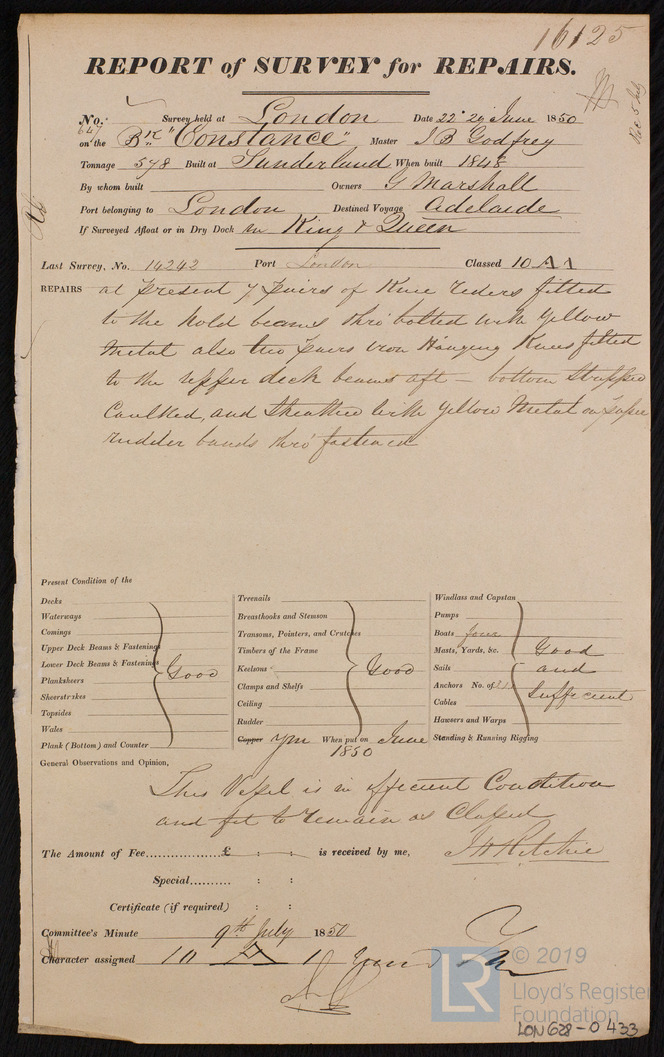 16125
REPORT of SURVEY for REPAIRS.
No. 647 Survey held at London Date 22 29 June 1850
on the Bk "Constance" Master J B Godfrey
Tonnage 578 Built at Sunderland When built 1848
By whom built Owners G Marshall
Port belonging to London Destined Voyage Adelaide
If Surveyed Afloat or in Dry Dock in King & Queen
Last Survey, No. 14242 Port London Classed 10 A 1
REPAIRS at present 7 pairs of Knee riders fitted
to the hold beams thro' bolted with yellow
metal also two pairs iron Hanging Knees fitted
to the upper deck beams aft – bottom stripped
Caulked, and Sheathed with yellow Metal on
rudder bands thro' fastened
Present Condition of the
Decks
Waterways
Comings
Upper Deck Beams & Fastenings
Lower Deck Beams & Fastenings
Planksheers
Sheerstrakes
Topsides
Wales
Plank (Bottom) and Counter
Good
Treenails
Breasthooks and Stemson
Transoms, Pointers, and Crutches
Timbers of the Frame
Keelsons
Clamps and Shelfs
Ceiling
Rudder
Good
Copper Ym When put on June
1850
Windlass and Capstan
Pumps
Boats four
Masts, Yards, &c.
Sails
Anchors No. of
Cables
Hawsers and Warps
Standing & Running Rigging
Good
and
Sufficient
General Observations and Opinion,
This Vessel is in efficient Condition
and fit to remain as Classed
The Amount of Fee................£ : : is received by me, J H Ritchie
Special.......... : :
Certificate (if required) : :
Committee's Minute 9th July 1850
Character assigned 10 A 1
LR © 2019
Lloyd's Register
Foundation
LON628-0433